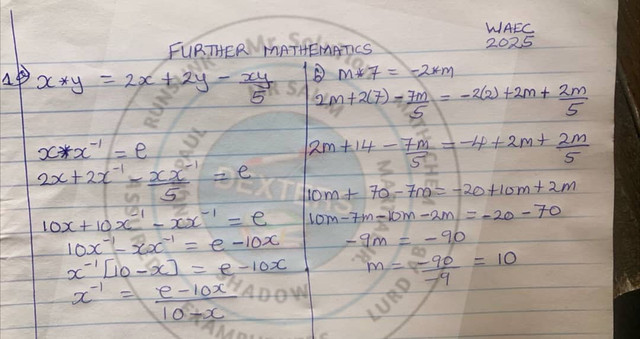 WAEC
2025
FURTHER MATHEMATICS
1a) x*y = 2x + 2y - xy/5
x*x⁻¹ = e
2x + 2x⁻¹ - xx⁻¹/5 = e
10x + 10x⁻¹ - xx⁻¹ = e
10x⁻¹ - xx⁻¹ = e - 10x
x⁻¹[10 - x] = e - 10x
x⁻¹ = e - 10x/10 - x
b) m*7 = -2*m
2m + 2(7) - 7m/5 = -2(2) + 2m + 2m/5
2m + 14 - 7m/5 = -4 + 2m + 2m/5
10m + 70 - 7m = -20 + 10m + 2m
10m - 7m - 10m - 2m = -20 - 70
-9m = -90
m = -90/-9 = 10
DEXTE
SHADOW
LURD AB